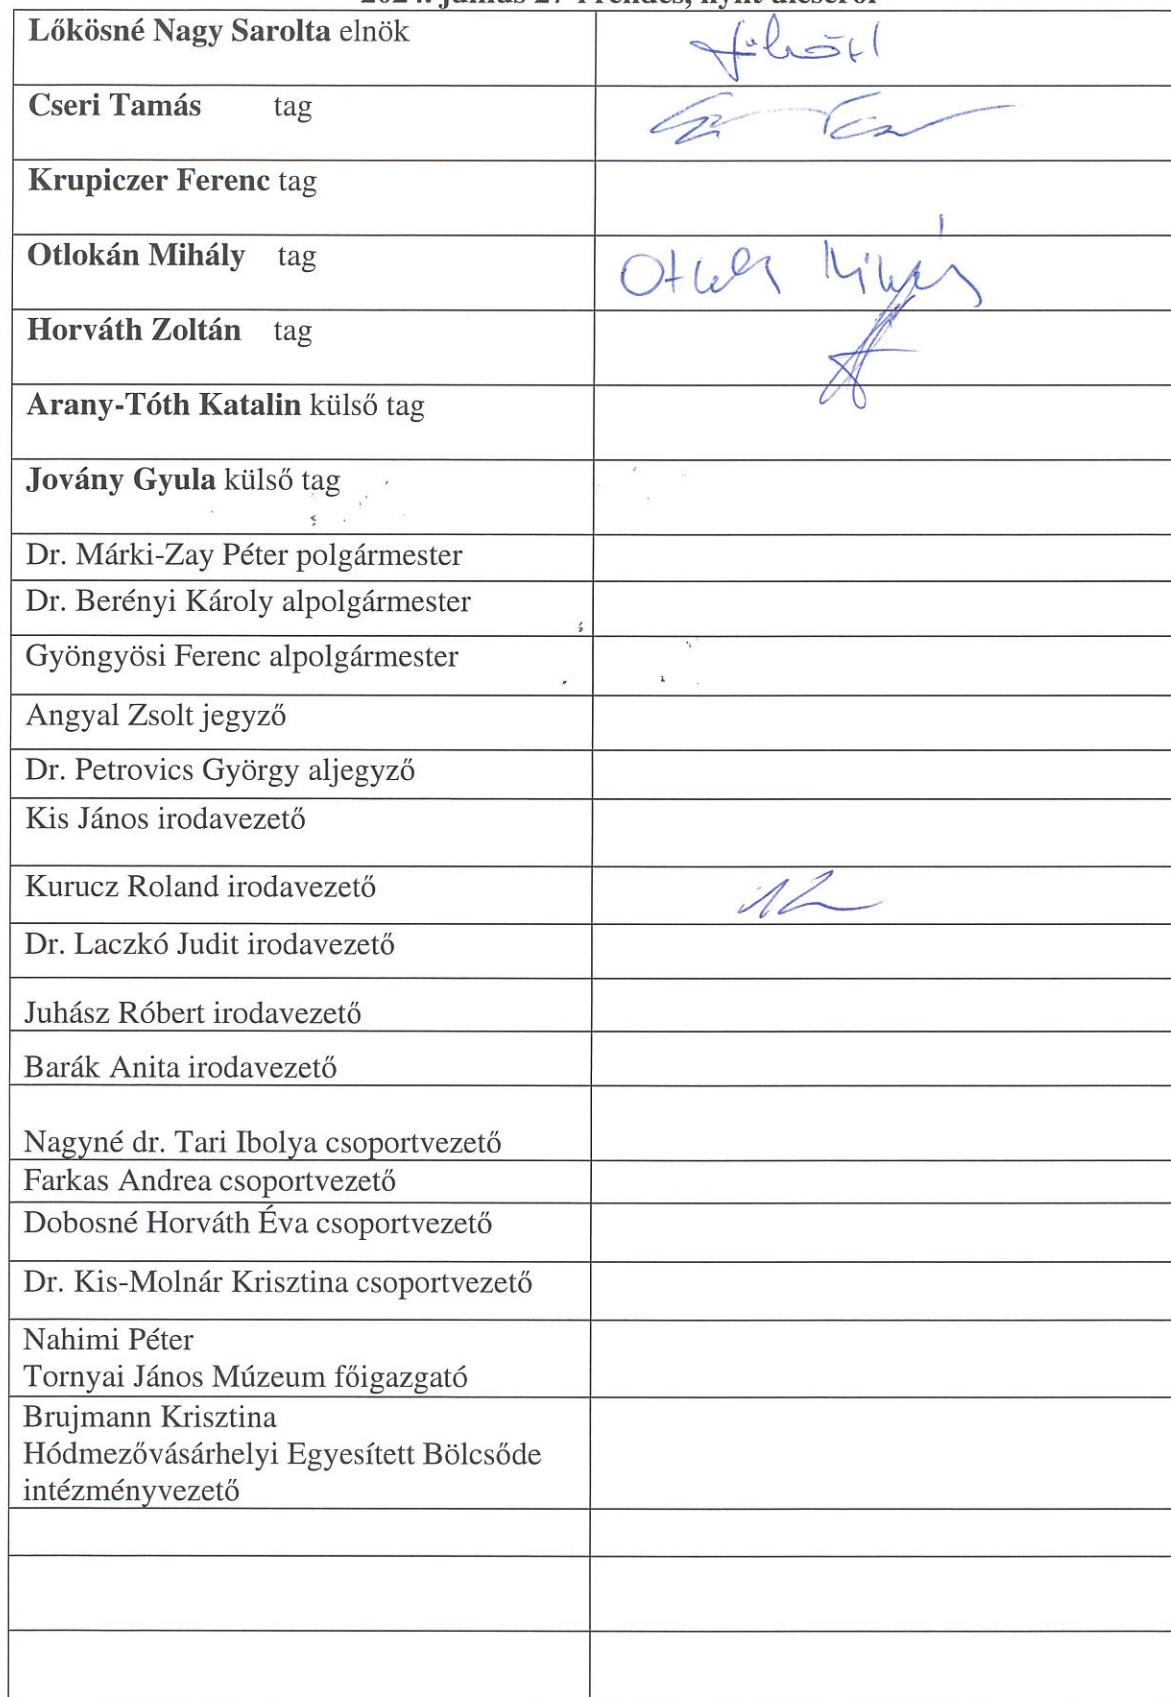 Lőkösné Nagy Sarolta elnök
Cseri Tamás tag
Krupiczer Ferenc tag
Otlokán Mihály tag
Horváth Zoltán tag
Arany-Tóth Katalin külső tag
Jovány Gyula külső tag
Dr. Márki-Zay Péter polgármester
Dr. Berényi Károly alpolgármester
Gyöngyösi Ferenc alpolgármester
Angyal Zsolt jegyző
Dr. Petrovics György aljegyző
Kis János irodavezető
Kurucz Roland irodavezető
Dr. Laczkó Judit irodavezető
Juhász Róbert irodavezető
Barák Anita irodavezető
Nagyné dr. Tari Ibolya csoportvezető
Farkas Andrea csoportvezető
Dobosné Horváth Éva csoportvezető
Dr. Kis-Molnár Krisztina csoportvezető
Nahimi Péter
Tornyai János Múzeum főigazgató
Brujmann Krisztina
Hódmezővásárhelyi Egyesített Bölcsőde
intézményvezető